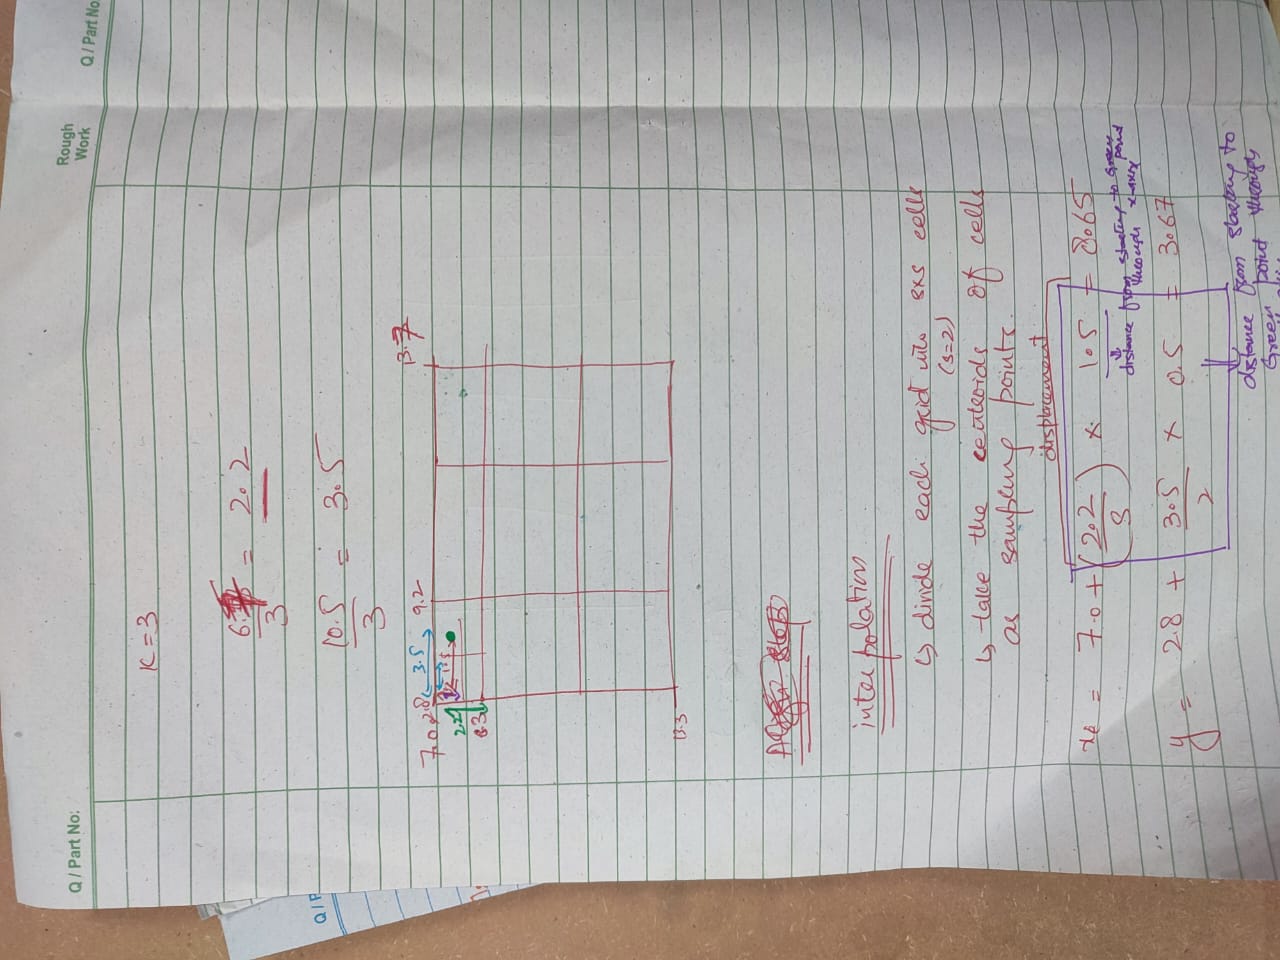 Q / Part No:
Rough
Work
Q / Part No
K = 3
6.
3
= 2.2
10.5
3
= 3.5
7.0
2.8
3.5
9.2
13.7
1.5
2.2
6.3
13.3
interpolation
↳ divide each grid into sxs cells
(s=2)
↳ take the centroids of cells
as sampling points.
displacement
x = 7.0 + (2.2/S) x 1.5 = 8.65
distance from starting to Green
through x-axis point
y = 2.8 + 3.5/2 x 0.5 = 3.67
distance from starting to
Green point through
Q/P